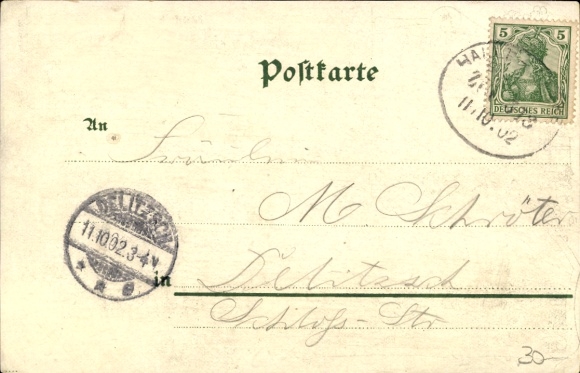 5 5
DEUTSCHES REICH
11.10.02
Postkarte
An
Fräulein
M. Schröter
DELITZSCH
11.10.02.3-4 N
* * e
in Delitzsch
Schloß-Str
30-